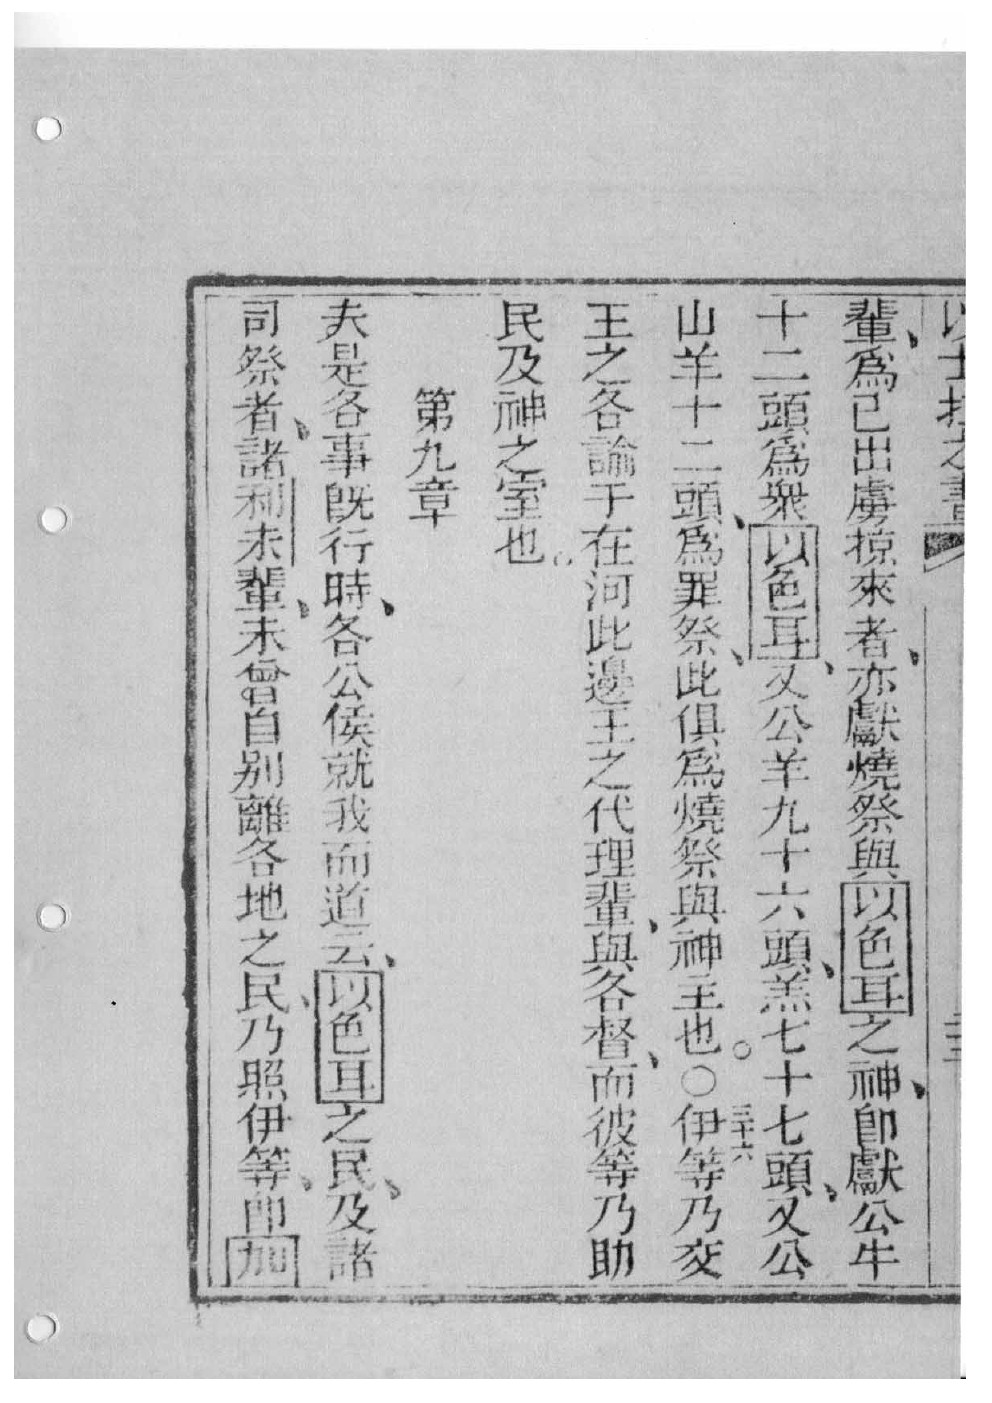 以士拉之書
二三
輩、爲已出虜掠來者、亦獻燒祭與以色耳之神、卽獻公牛
十二頭爲衆以色耳、又公羊九十六頭、羔七十七頭、又公
山羊十二頭、爲罪祭、此俱爲燒祭與神主也。○三十六伊等乃交
王之各諭于在河此邊王之代理輩、與各督、而彼等乃助
民及神之室也。
第九章
夫是各事旣行時、各公侯就我而道云、以色耳之民、及諸
司祭者、諸利未輩、未曾自別離各地之民、乃照伊等、卽加